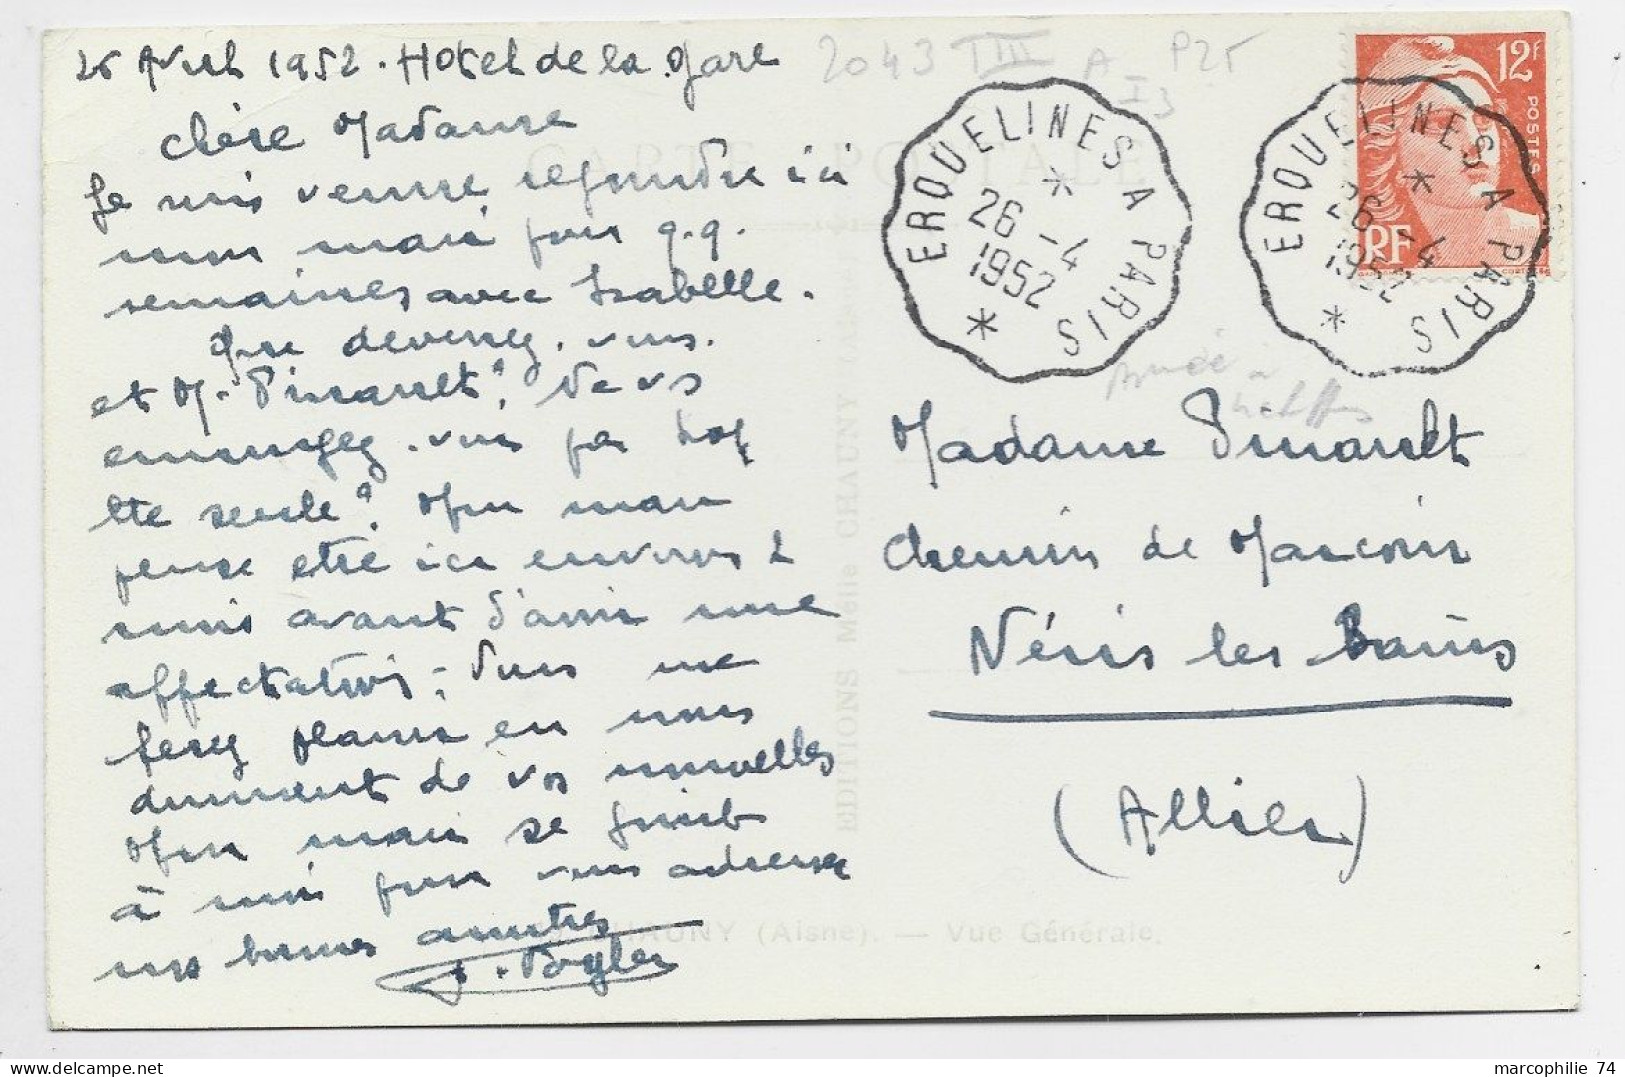 26 Avril 1952. Hotel de la Gare
Chère Madame
Je suis venue rejoindre ici
mon mari pour q.q.
semaines avec Isabelle.
Que devenez-vous
et M. Pinault? Ne vs
ennuyez-vous pas trop
tte seule? Mon mari
pense être ici environ 2
mois avant d'avoir une
affectation. Vous me
ferez plaisir en nous
donnant de vos nouvelles
Mon mari se joint
à moi pour vous adresser
nos bonnes amitiés
2043 TIII A P25
I3
CARTE POSTALE
12F
POSTES
RF
ERQUELINES A PARIS
26-4
1952
ERQUELINES A PARIS
26-4
1952
Madame Pinault
Chemin de
Néris les Bains
(Allier)
EDITIONS Melle CHAUNY
CHAUNY (Aisne). — Vue Générale.
marcophilie 74